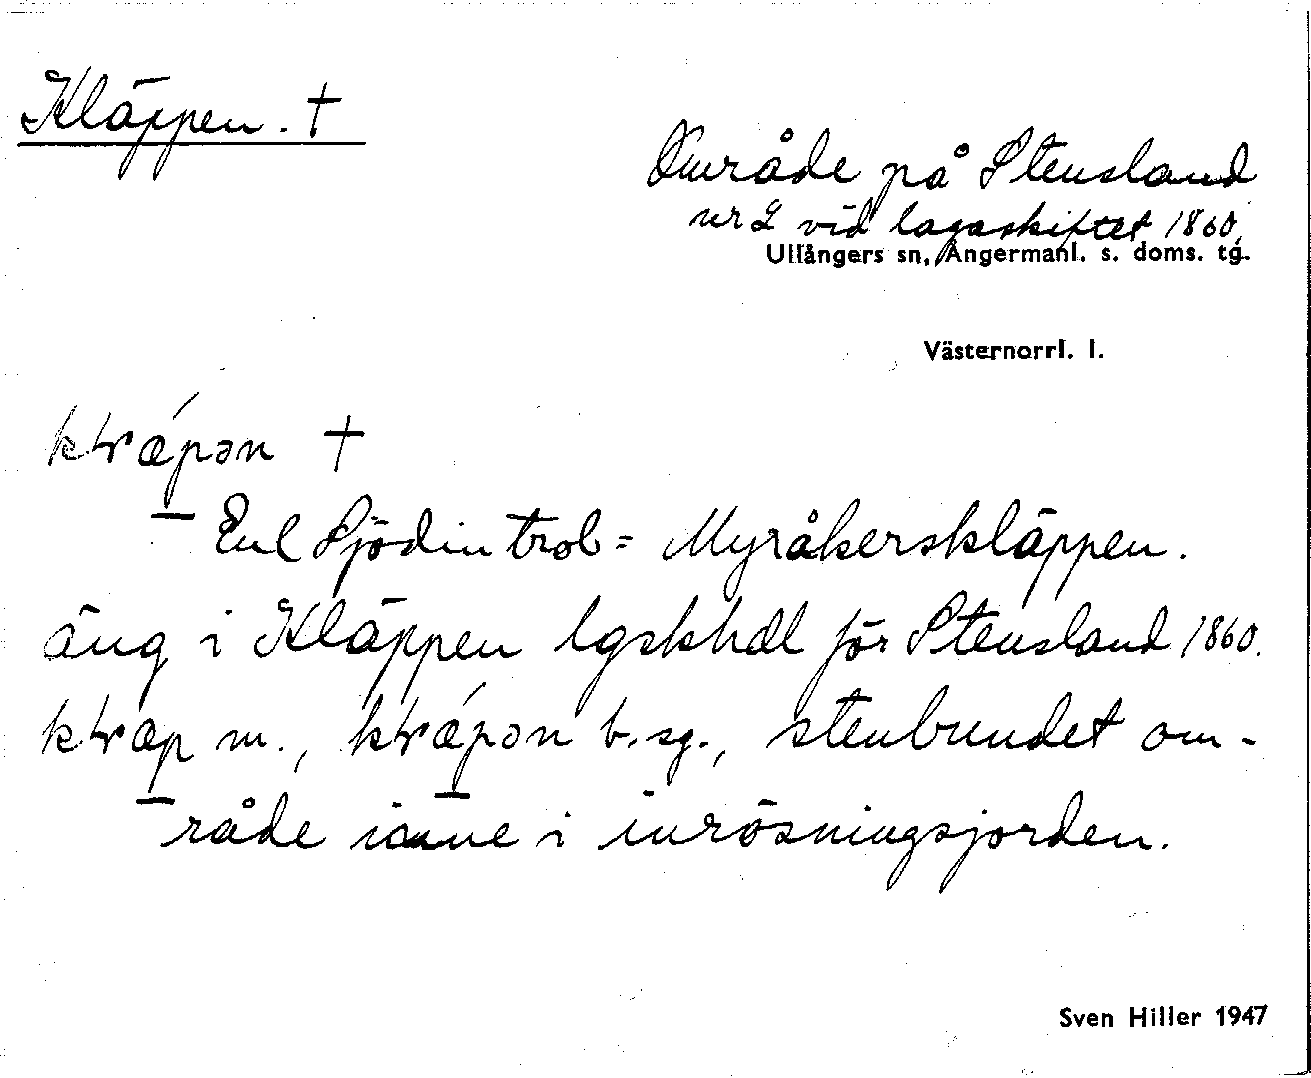 Kläppen. †
Område på Stensland
nr 2 vid laga skiftet 1860,
Ullångers sn, Ångermanl. s. doms. tg.
Västernorrl. l.
†
Enl Sjödin trol = Myråkerskläppen.
äng i Kläppen lgskhdl för Stensland 1860.
m., b. sg., stenbundet om-
råde inne i inrösningsjorden.
Sven Hiller 1947